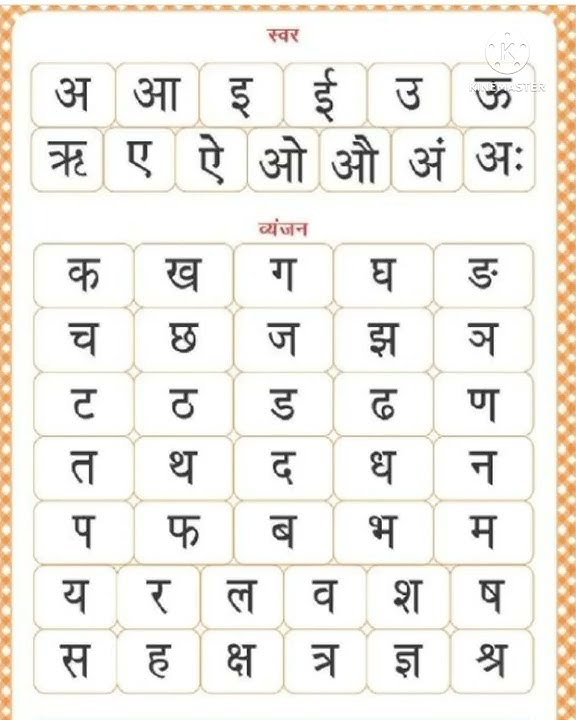 स्वर
K
KINEMASTER
अ आ इ ई उ ऊ
ऋ ए ऐ ओ औ अं अः
व्यंजन
क ख ग घ ङ
च छ ज झ ञ
ट ठ ड ढ ण
त थ द ध न
प फ ब भ म
य र ल व श ष
स ह क्ष त्र ज्ञ श्र